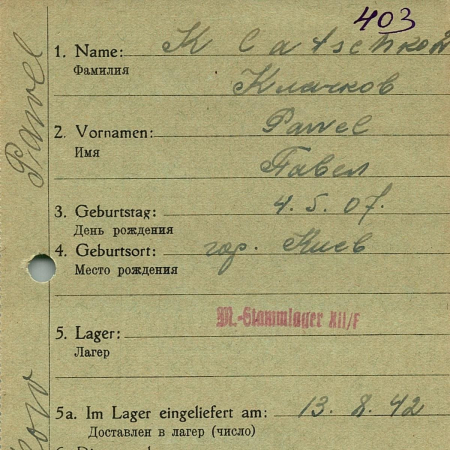 403
1. Name: Klatschkow
Фамилия
Клачков
2. Vornamen: Pawel
Имя
Павел
3. Geburtstag: 4.5.07.
День рождения
4. Geburtsort: гор. Киев
Место рождения
M.-Stammlager XII/F
5. Lager:
Лагер
5a. Im Lager eingeliefert am: 13.8.42
Доставлен в лагер (число)
Pawel